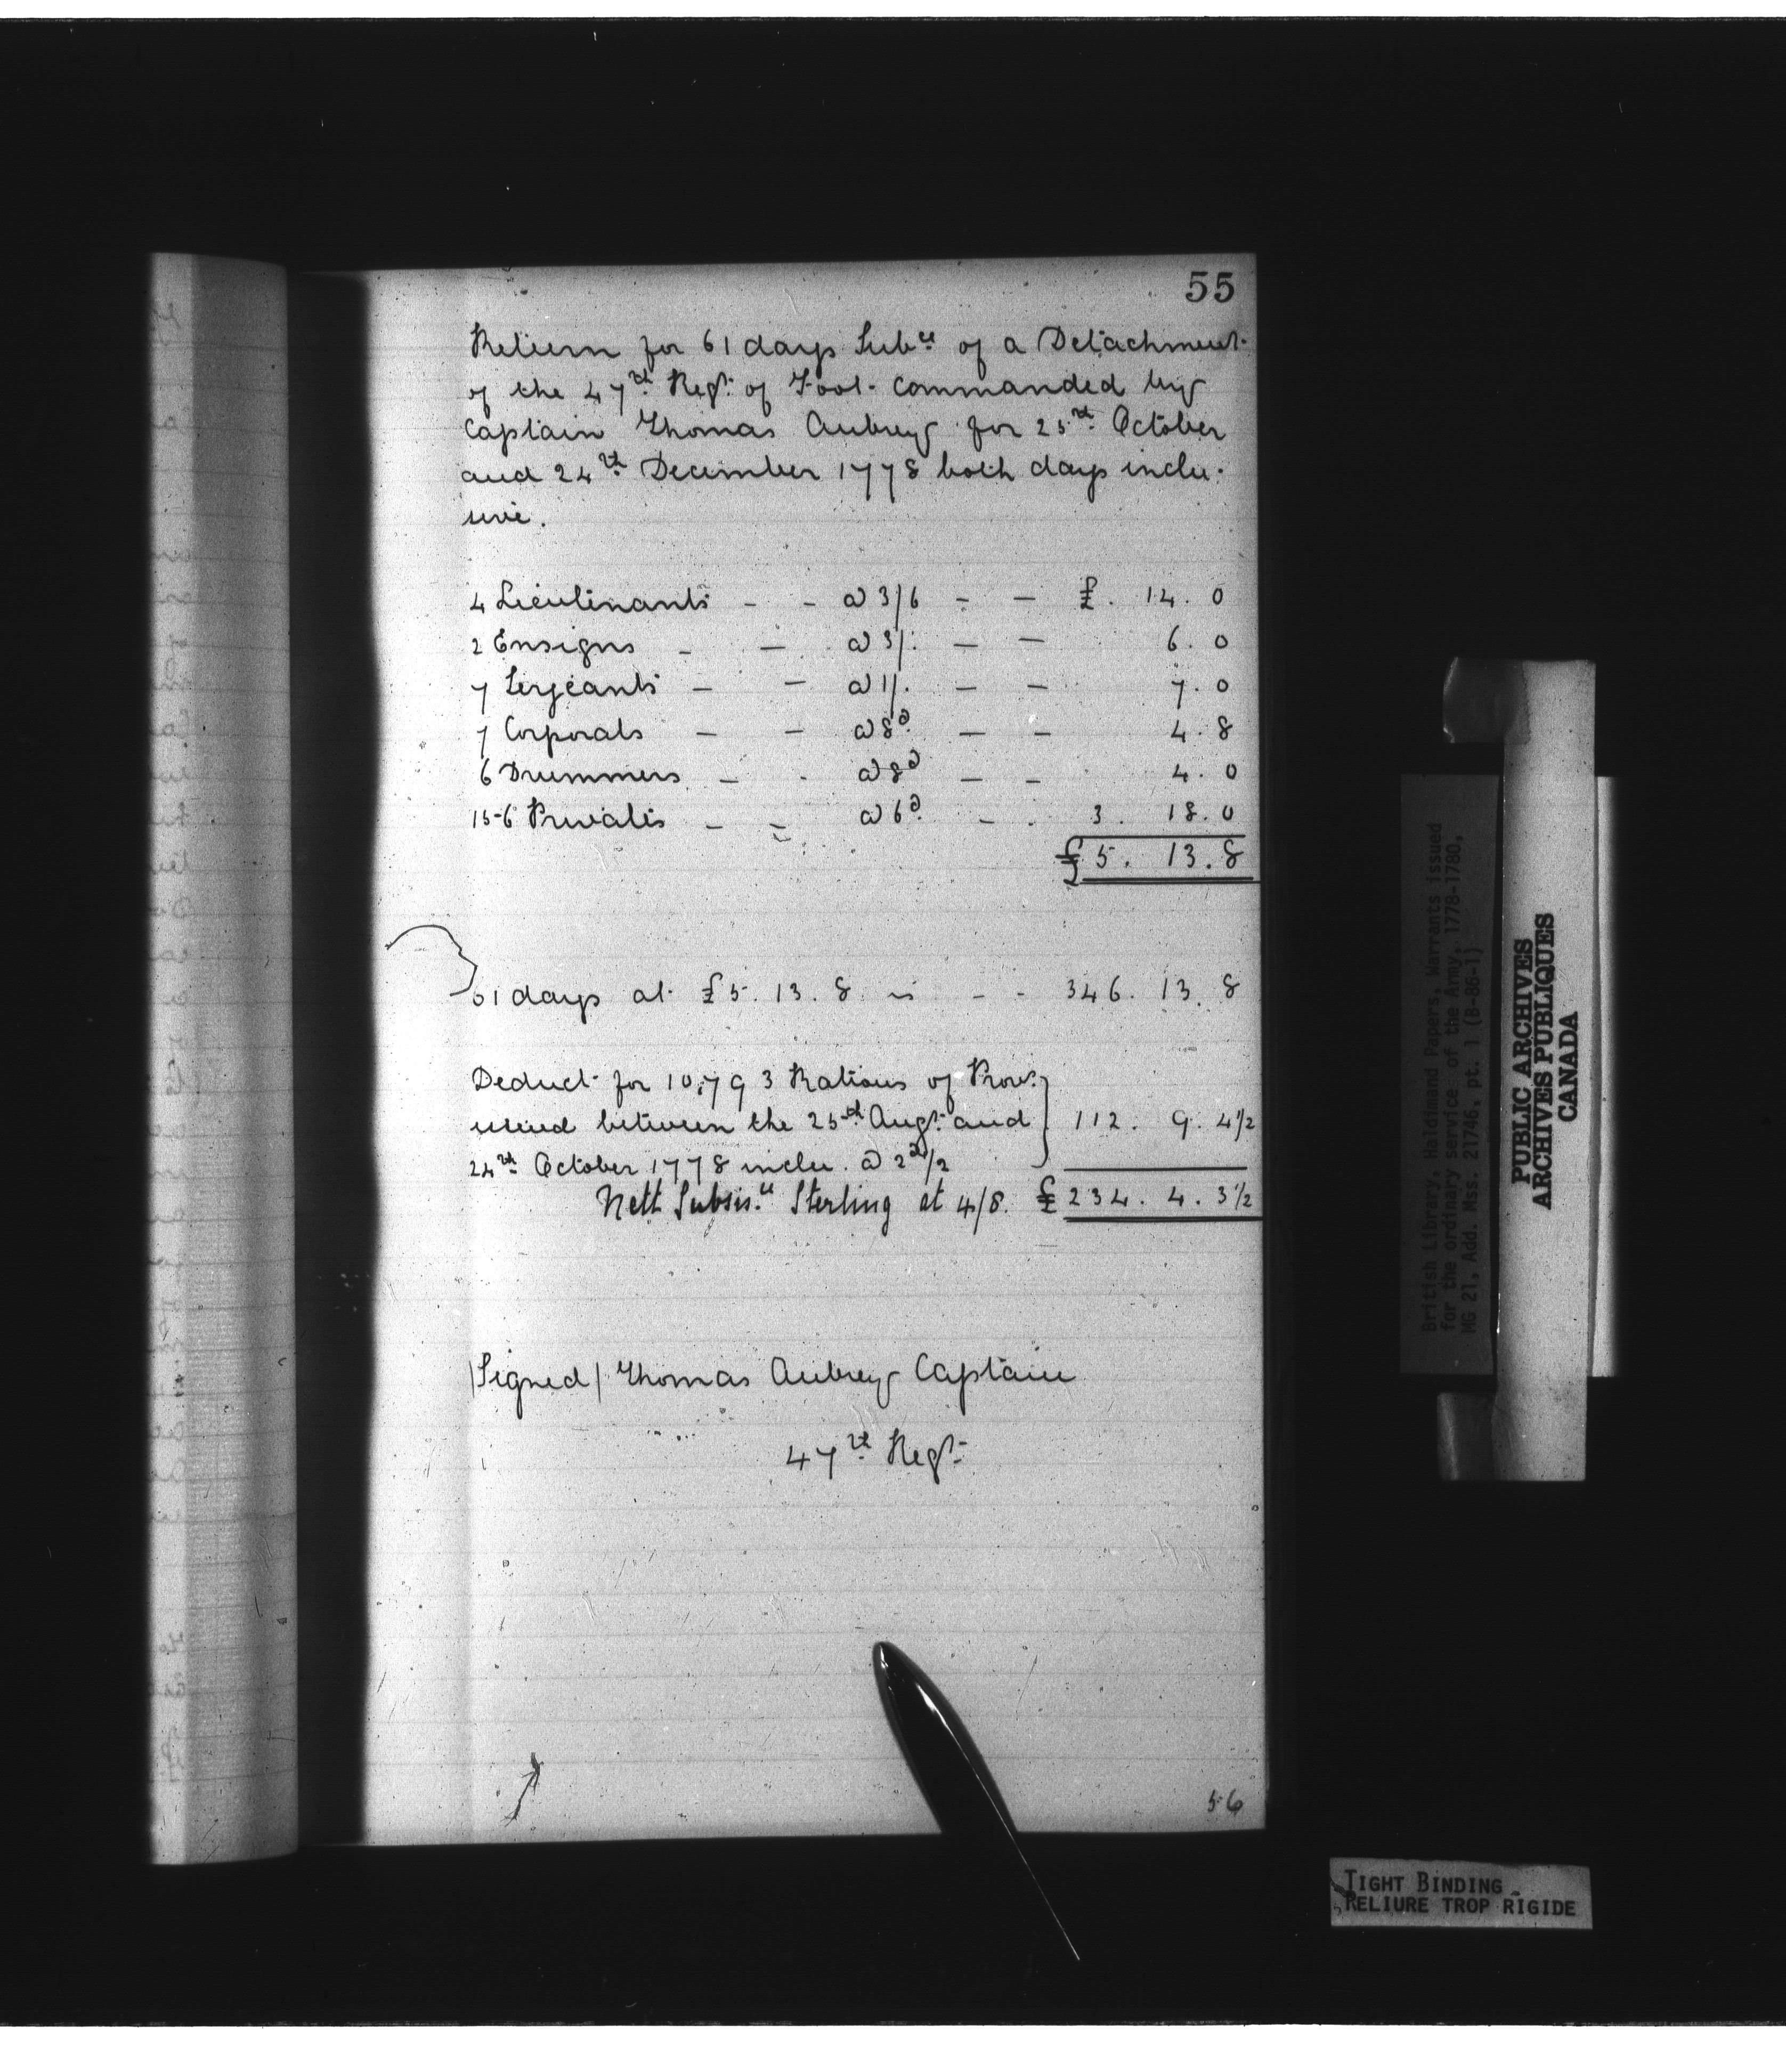 55
Return for 61 days Subce of a Detachment
of the 47th Regt of Foot commanded by
Captain Thomas Aubrey for 25th October
and 24th December 1778 both days inclu-
sive.
4 Lieutenants - - @ 3/6 - - £. 14. 0
2 Ensigns - - @ 3/. - - 6. 0
7 Serjeants - - @ 1/. - - 7. 0
7 Corporals - - @ 8d - - 4. 8
6 Drummers - - @ 8d - - 4. 0
156 Privates - - @ 6d - - 3. 18. 0
£5. 13. 8
61 days at £5. 13. 8 is - - 346. 13. 8
Deduct for 10,793 Rations of Provs
between the 25th Augt and 112. 9. 4½
24th October 1778 inclu. @ 2d/2
Nett Subsisce Sterling at 4/8. £234. 4. 3½
/Signed/ Thomas Aubrey Captain
47th Regt
56
British Library, Haldimand Papers, Warrants issued
for the ordinary service of the Army, 1778-1780,
MG 21, Add. Mss. 21746, pt. 1 (B-86-1)
PUBLIC ARCHIVES
ARCHIVES PUBLIQUES
CANADA
TIGHT BINDING
RELIURE TROP RIGIDE